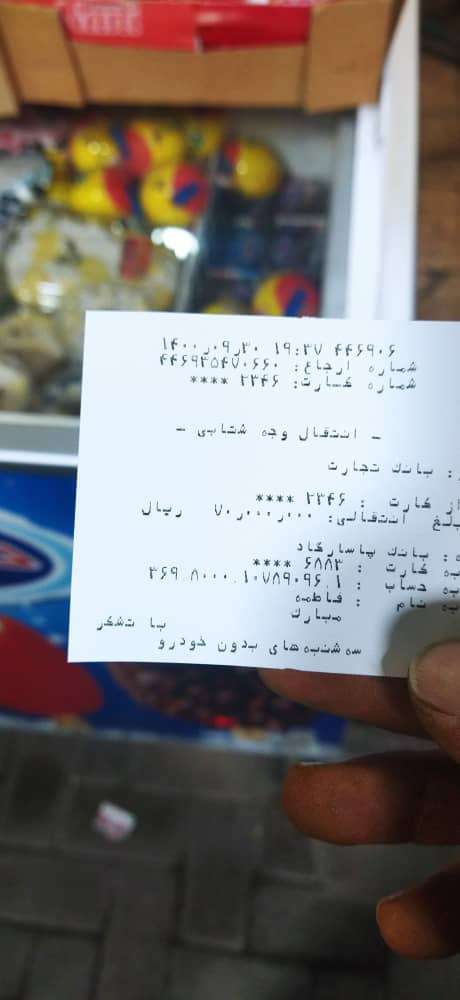 ۱۴۰۰٫۰۹٫۳۰ ۱۹:۳۷ ۴۴۶۹۰۶
شماره ارجاع: ۴۴۶۹۳۵۴۷۰۶۶۰
شماره کارت: ۲۳۴۶ ****
- انتقال وجه شتابی -
: بانک تجارت
از کارت : ۲۳۴۶ ****
بلغ انتقالی: ۷۰٫۰۰۰٫۰۰۰ ریال
ه: بانک پاسارگاد
به کارت : ۶۸۸۳ ****
به حساب : ۳۶۹.۸۰۰۰.۱۰۷۸۹۰۹۶.۱
به نام : فاطمه
مبارک
با تشکر
سه شنبه های بدون خودرو